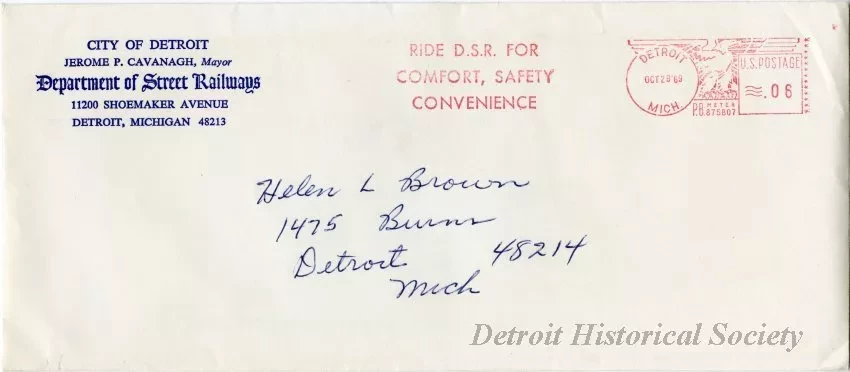 CITY OF DETROIT
JEROME P. CAVANAGH, Mayor
Department of Street Railways
11200 SHOEMAKER AVENUE
DETROIT, MICHIGAN 48213
RIDE D.S.R. FOR
COMFORT, SAFETY
CONVENIENCE
DETROIT
OCT 28 '69
MICH.
U.S. POSTAGE
.06
P.B. METER
P.B. 875807
Helen L Brown
1475 Burns
Detroit 48214
Mich
Detroit Historical Society